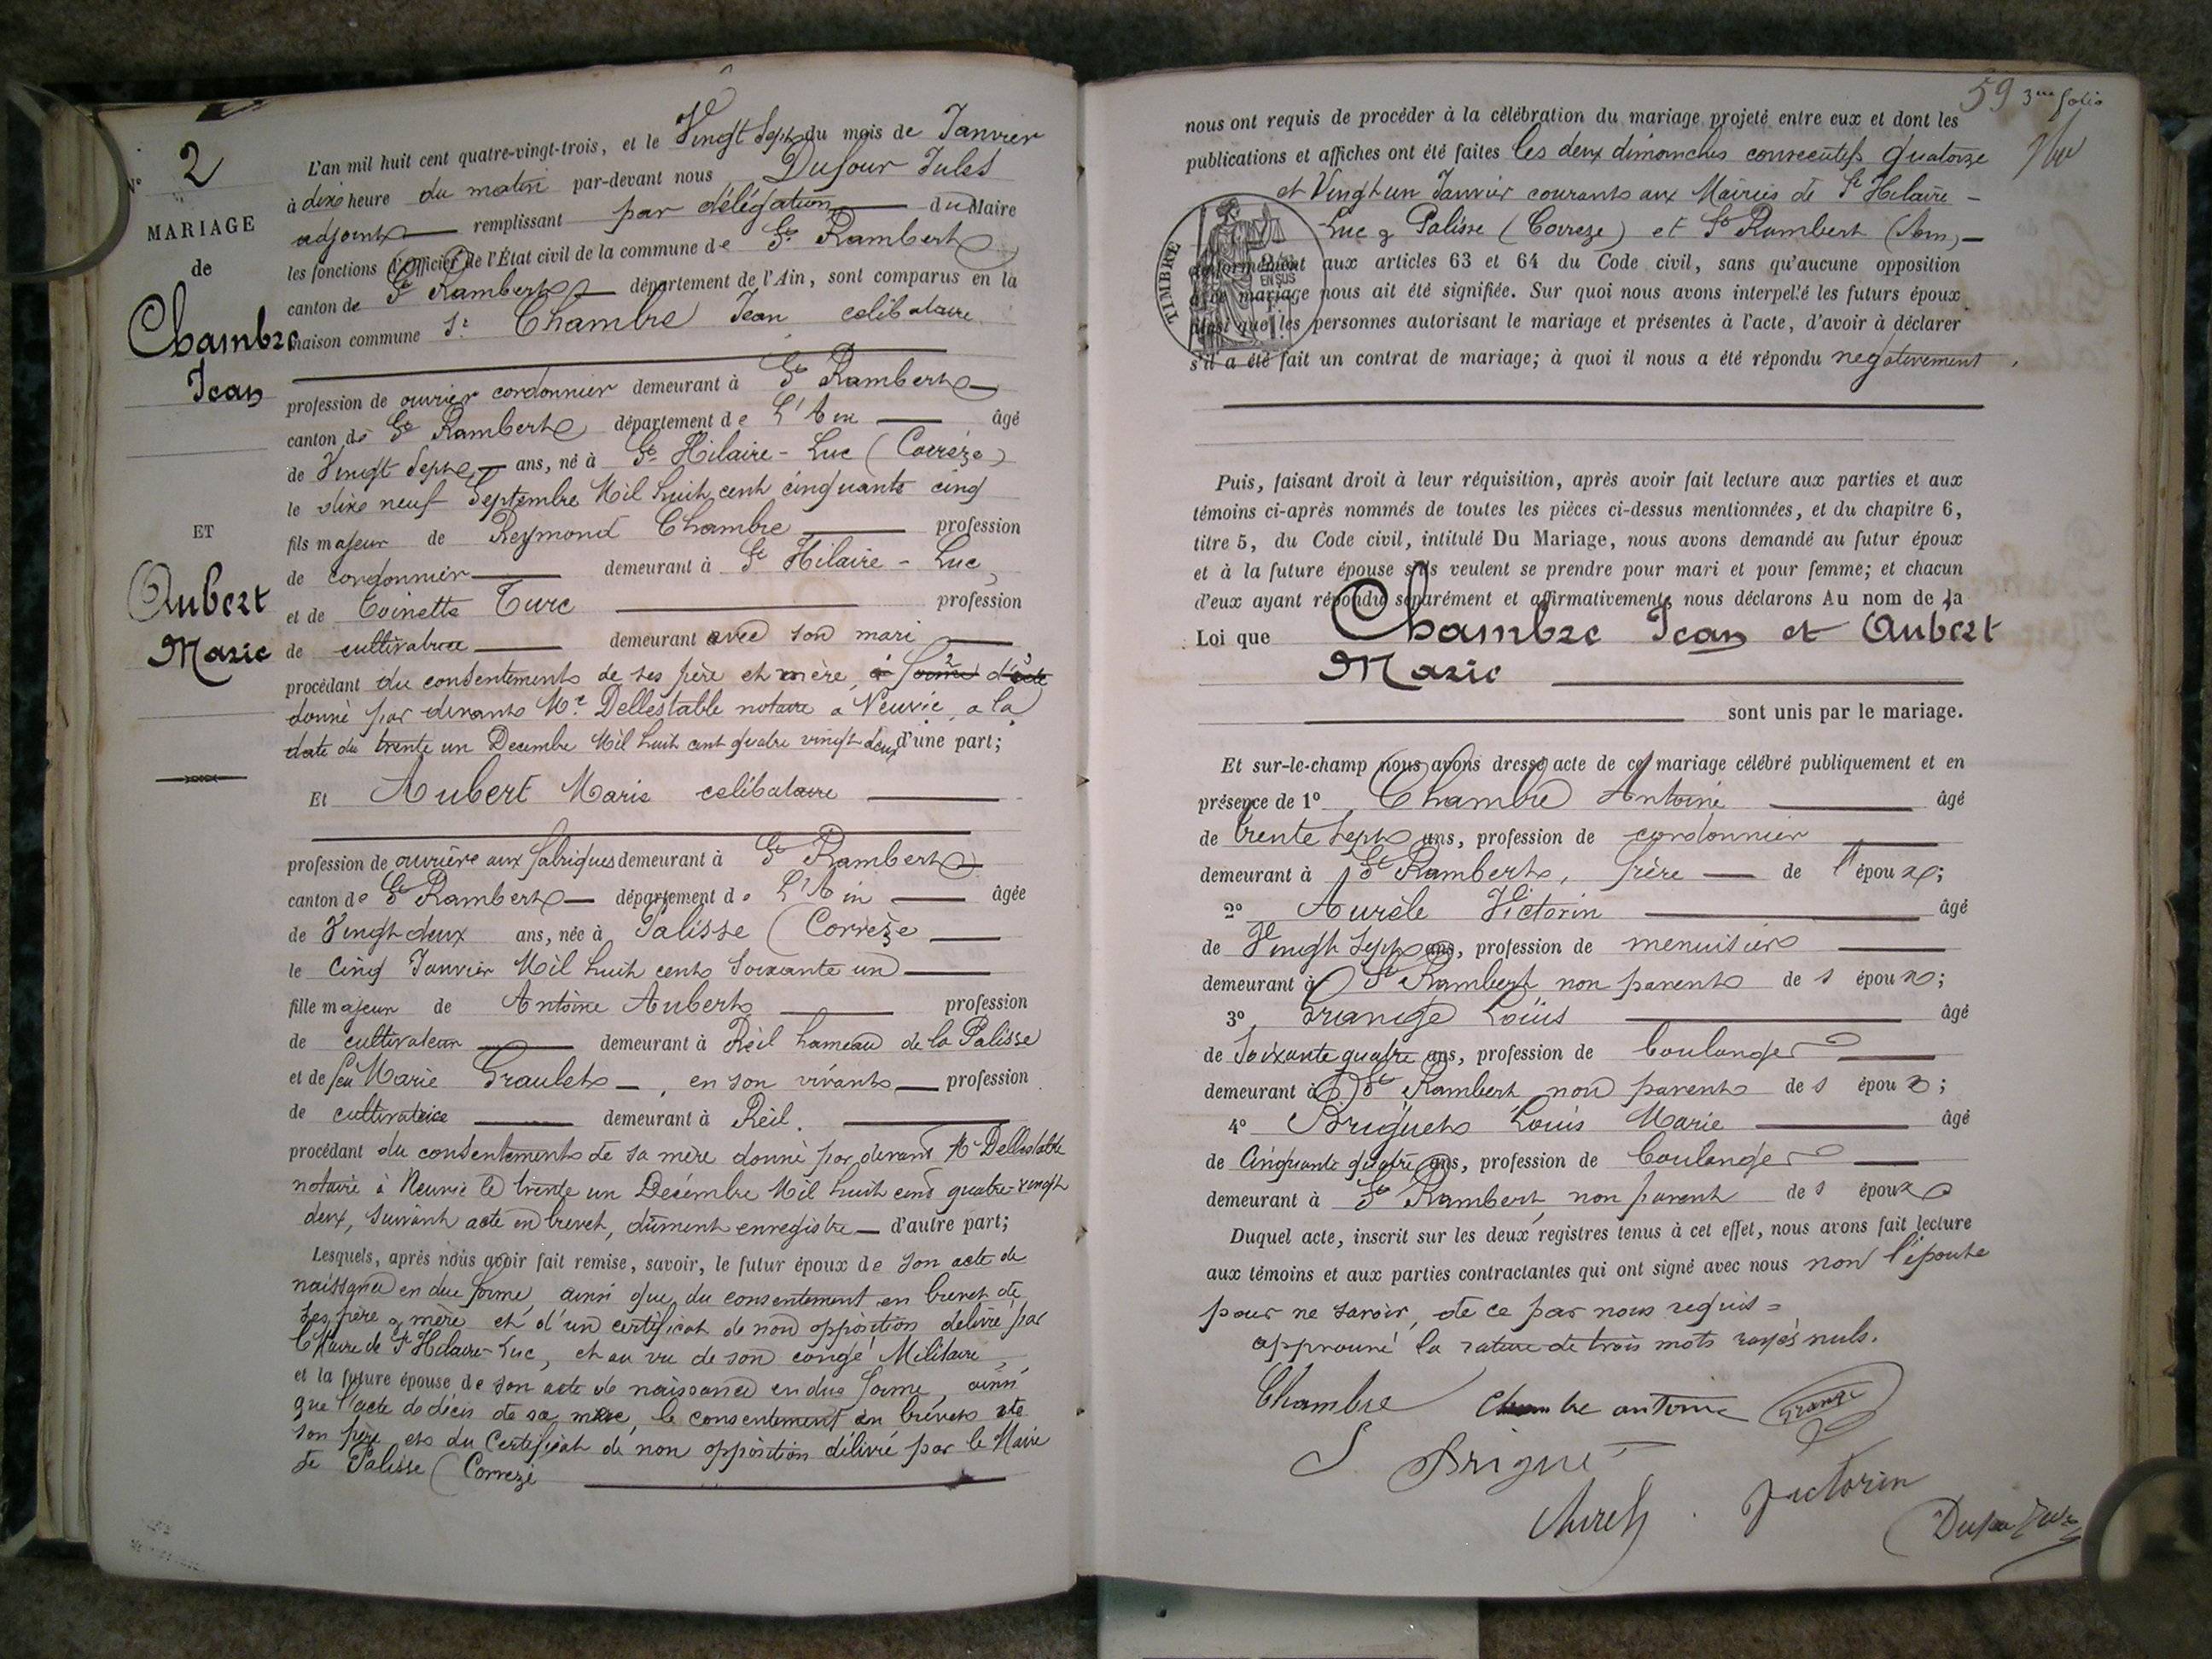 N° 2
MARIAGE
de
Chambre
Jean
ET
Aubert
Marie
L'an mil huit cent quatre-vingt-trois, et le Vingt Sept du mois de Janvier
à dix heure du matin par-devant nous Dufour Jules
adjoint remplissant par délégation du Maire
les fonctions d'officier de l'État civil de la commune de St Rambert
canton de St Rambert département de l'Ain, sont comparus en la
maison commune Sr Chambre Jean celibataire
profession de ouvrier cordonnier demeurant à St Rambert
canton de St Rambert département de L'Ain âgé
de Vingt Sept ans, né à St Hilaire - Luc (Corrèze)
le dix neuf Septembre Mil huit cent cinquante cinq
fils majeur de Reymond Chambre profession
de cordonnier demeurant à St Hilaire - Luc,
et de Toinette Turc profession
de cultivatrice demeurant avec son mari
procédant du consentement de ses père et mère, à forme d'acte
donné par devant Me Dellestable notaire a Neuvic, a la
date du trente un Decembre Mil huit cent quatre vingt deux d'une part;
Et Aubert Marie celibataire
profession de ouvrière aux fabriques demeurant à St Rambert
canton de St Rambert département de L'Ain âgée
de Vingt deux ans, née à Palisse (Corrèze
le Cinq Janvier Mil huit cent soixante un
fille majeur de Antoine Aubert profession
de cultivateur demeurant à Reil hameau de la Palisse
et de feu Marie Graulet, en son vivant profession
de cultivatrice demeurant à Reil.
procédant du consentement de sa mère donné par devant Me Dellestable
notaire à Neuvic le trente un Decembre Mil huit cent quatre-vingt
deux, suivant acte en brevet, dûment enregistre d'autre part;
Lesquels, après nous avoir fait remise, savoir, le futur époux de son acte de
naissance en due forme, ainsi que du consentement en brevet de
ses père & mère et d'un certificat de non opposition délivré par
le Maire de St Hilaire-Luc, et au vu de son congé Militaire,
et la future épouse de son acte de naissance en due forme, ainsi
que l'acte de décès de sa mère, le consentement en brevet de
son père, et du Certificat de non opposition délivré par le Maire
de Palisse (Correze
59 3me folio
nous ont requis de procéder à la célébration du mariage projeté entre eux et dont les
publications et affiches ont été faites les deux dimanches consecutifs quatorze
et Vingt un Janvier courant aux Mairies de St Hilaire -
Luc & Palisse (Correze) et St Rambert (Ain)
TIMBRE
EN SUS
conformément aux articles 63 et 64 du Code civil, sans qu'aucune opposition
à ce mariage nous ait été signifiée. Sur quoi nous avons interpellé les futurs époux
ainsi que les personnes autorisant le mariage et présentes à l'acte, d'avoir à déclarer
s'il a été fait un contrat de mariage; à quoi il nous a été répondu negativement.
Puis, faisant droit à leur réquisition, après avoir fait lecture aux parties et aux
témoins ci-après nommés de toutes les pièces ci-dessus mentionnées, et du chapitre 6,
titre 5, du Code civil, intitulé Du Mariage, nous avons demandé au futur époux
et à la future épouse s'ils veulent se prendre pour mari et pour femme; et chacun
d'eux ayant répondu séparément et affirmativement, nous déclarons Au nom de la
Loi que Chambre Jean et Aubert
Marie
sont unis par le mariage.
Et sur-le-champ nous avons dressé acte de ce mariage célébré publiquement et en
présence de 1° Chambre Antoine âgé
de trente sept ans, profession de cordonnier
demeurant à St Rambert, frère de l'époux;
2° Aurèle Victorin âgé
de Vingt Sept ans, profession de menuisier
demeurant à St Rambert non parent de s époux;
3° Grange Loüis âgé
de Soixante quatre ans, profession de boulanger
demeurant à St Rambert non parent de s époux;
4° Briguet Louis Marie âgé
de Cinquante quatre ans, profession de boulanger
demeurant à St Rambert, non parent de s époux
Duquel acte, inscrit sur les deux registres tenus à cet effet, nous avons fait lecture
aux témoins et aux parties contractantes qui ont signé avec nous non l'épouse
pour ne savoir, de ce par nous requis =
approuvé la rature de trois mots rayés nuls.
Chambre Chambre antoine Grange
Brigue
Victorin